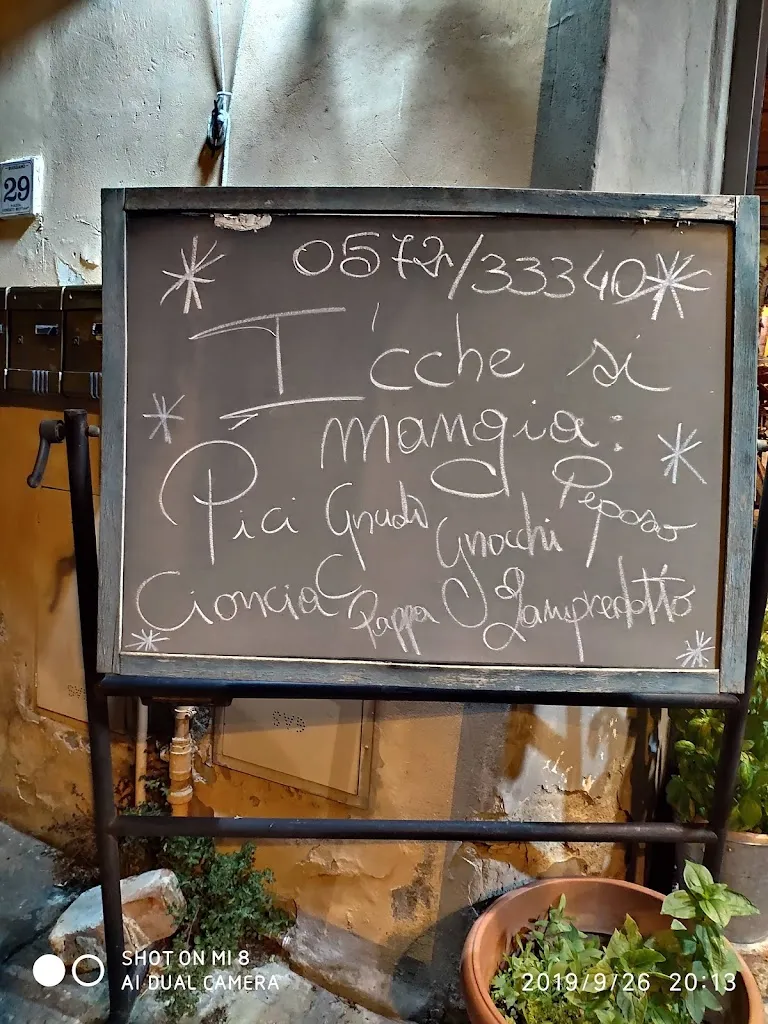 29
0572/33340
I' cche si
mangia:
Pici Gnudi Gnocchi Peposo
Cioncia Pappa Lampredotto
SHOT ON MI 8
AI DUAL CAMERA
2019/9/26 20:13